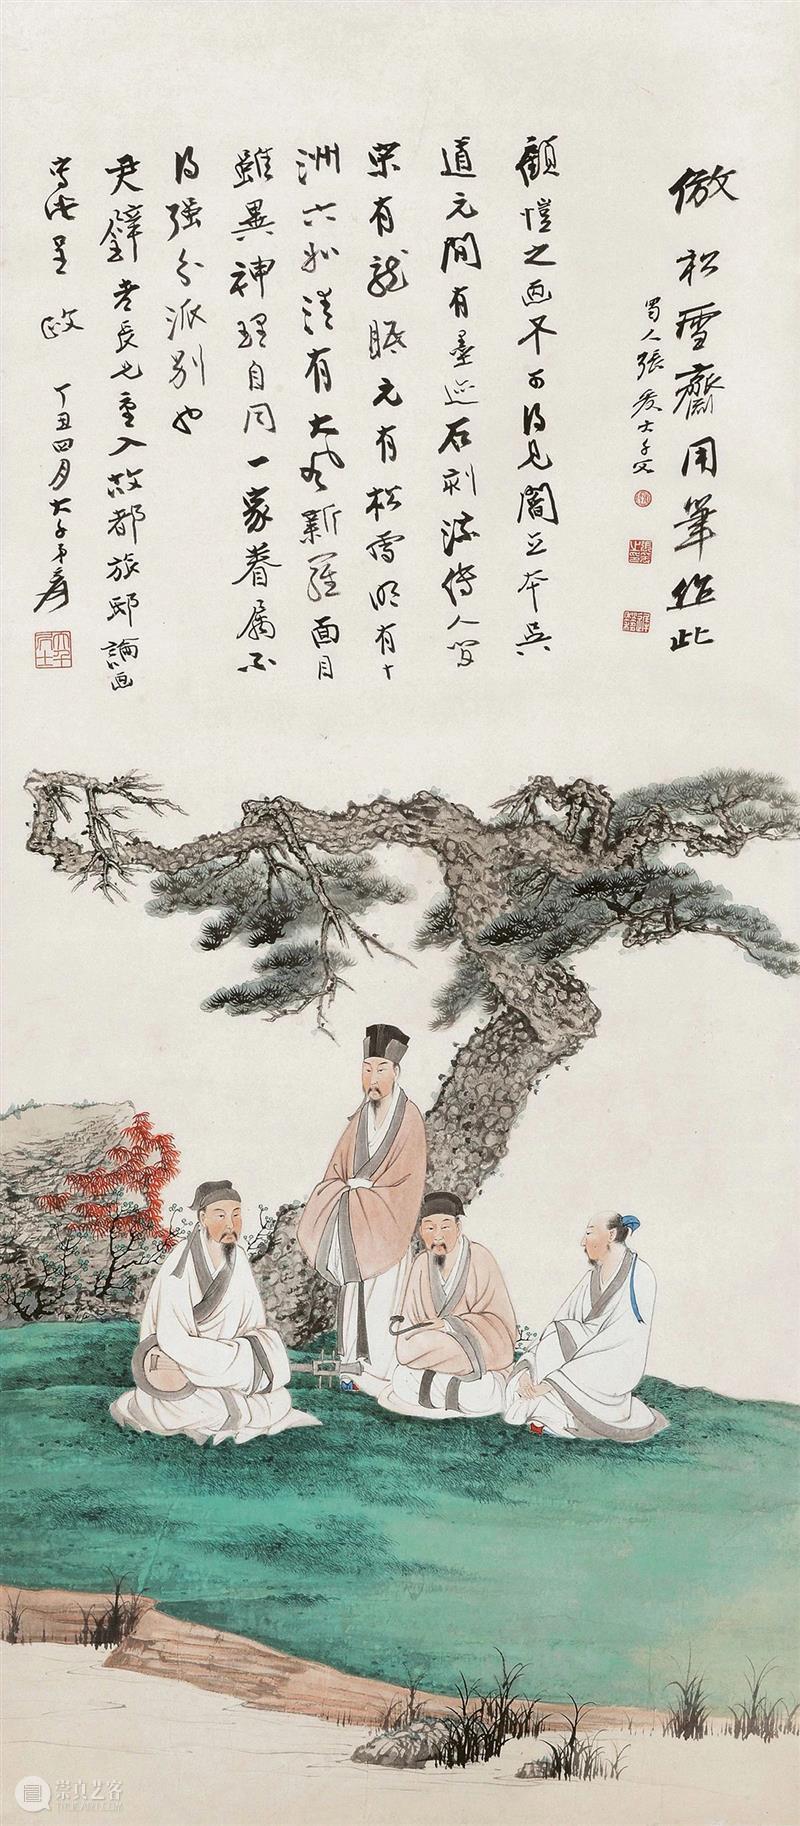 倣松雪齋用筆作此
蜀人張爰大千父
顧愷之画不可得見閻立本吳
道元間有墨迹石刻流傳人間
宋有龍眠元有松雪明有十
洲六如清有大風新羅面目
雖異神理自同一家眷屬不
得強分派別也
長兄重入故都旅邸論画
寫此呈政 丁丑四月大千弟爰
崇真艺客